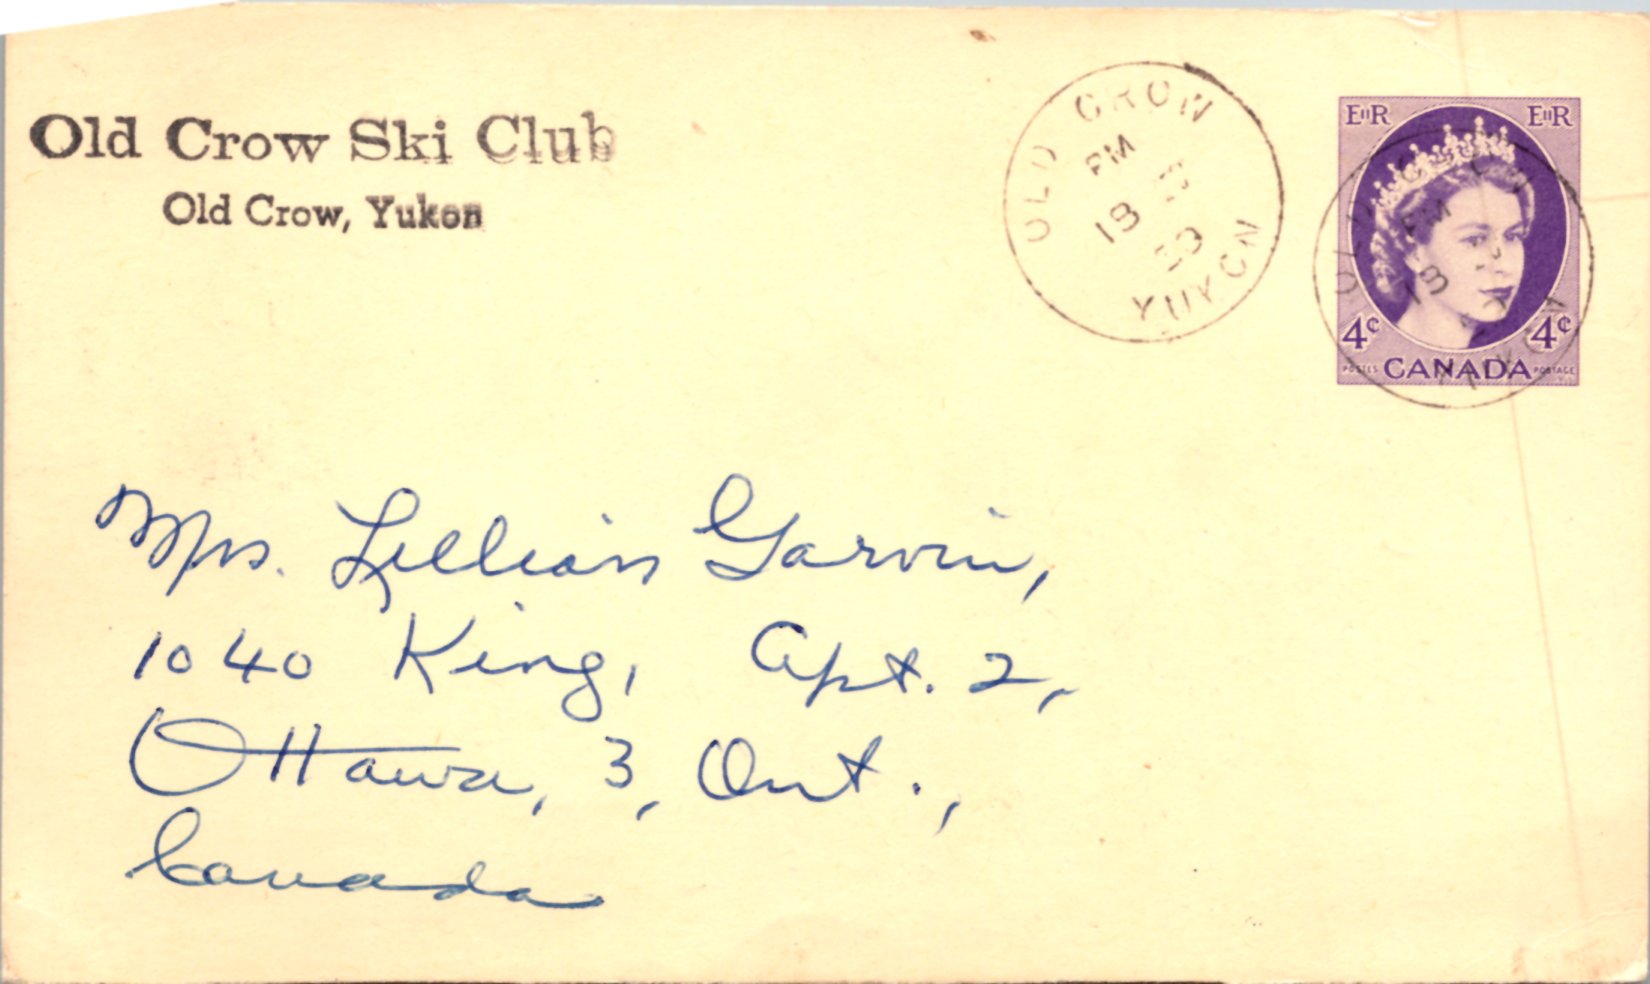 Old Crow Ski Club
Old Crow, Yukon
OLD CROW
PM
18
YUKON
EIIR EIIR
4¢ 4¢
POSTES CANADA POSTAGE
Mrs. Lillian Garvin,
1040 King, Apt. 2,
Ottawa, 3, Ont.,
Canada